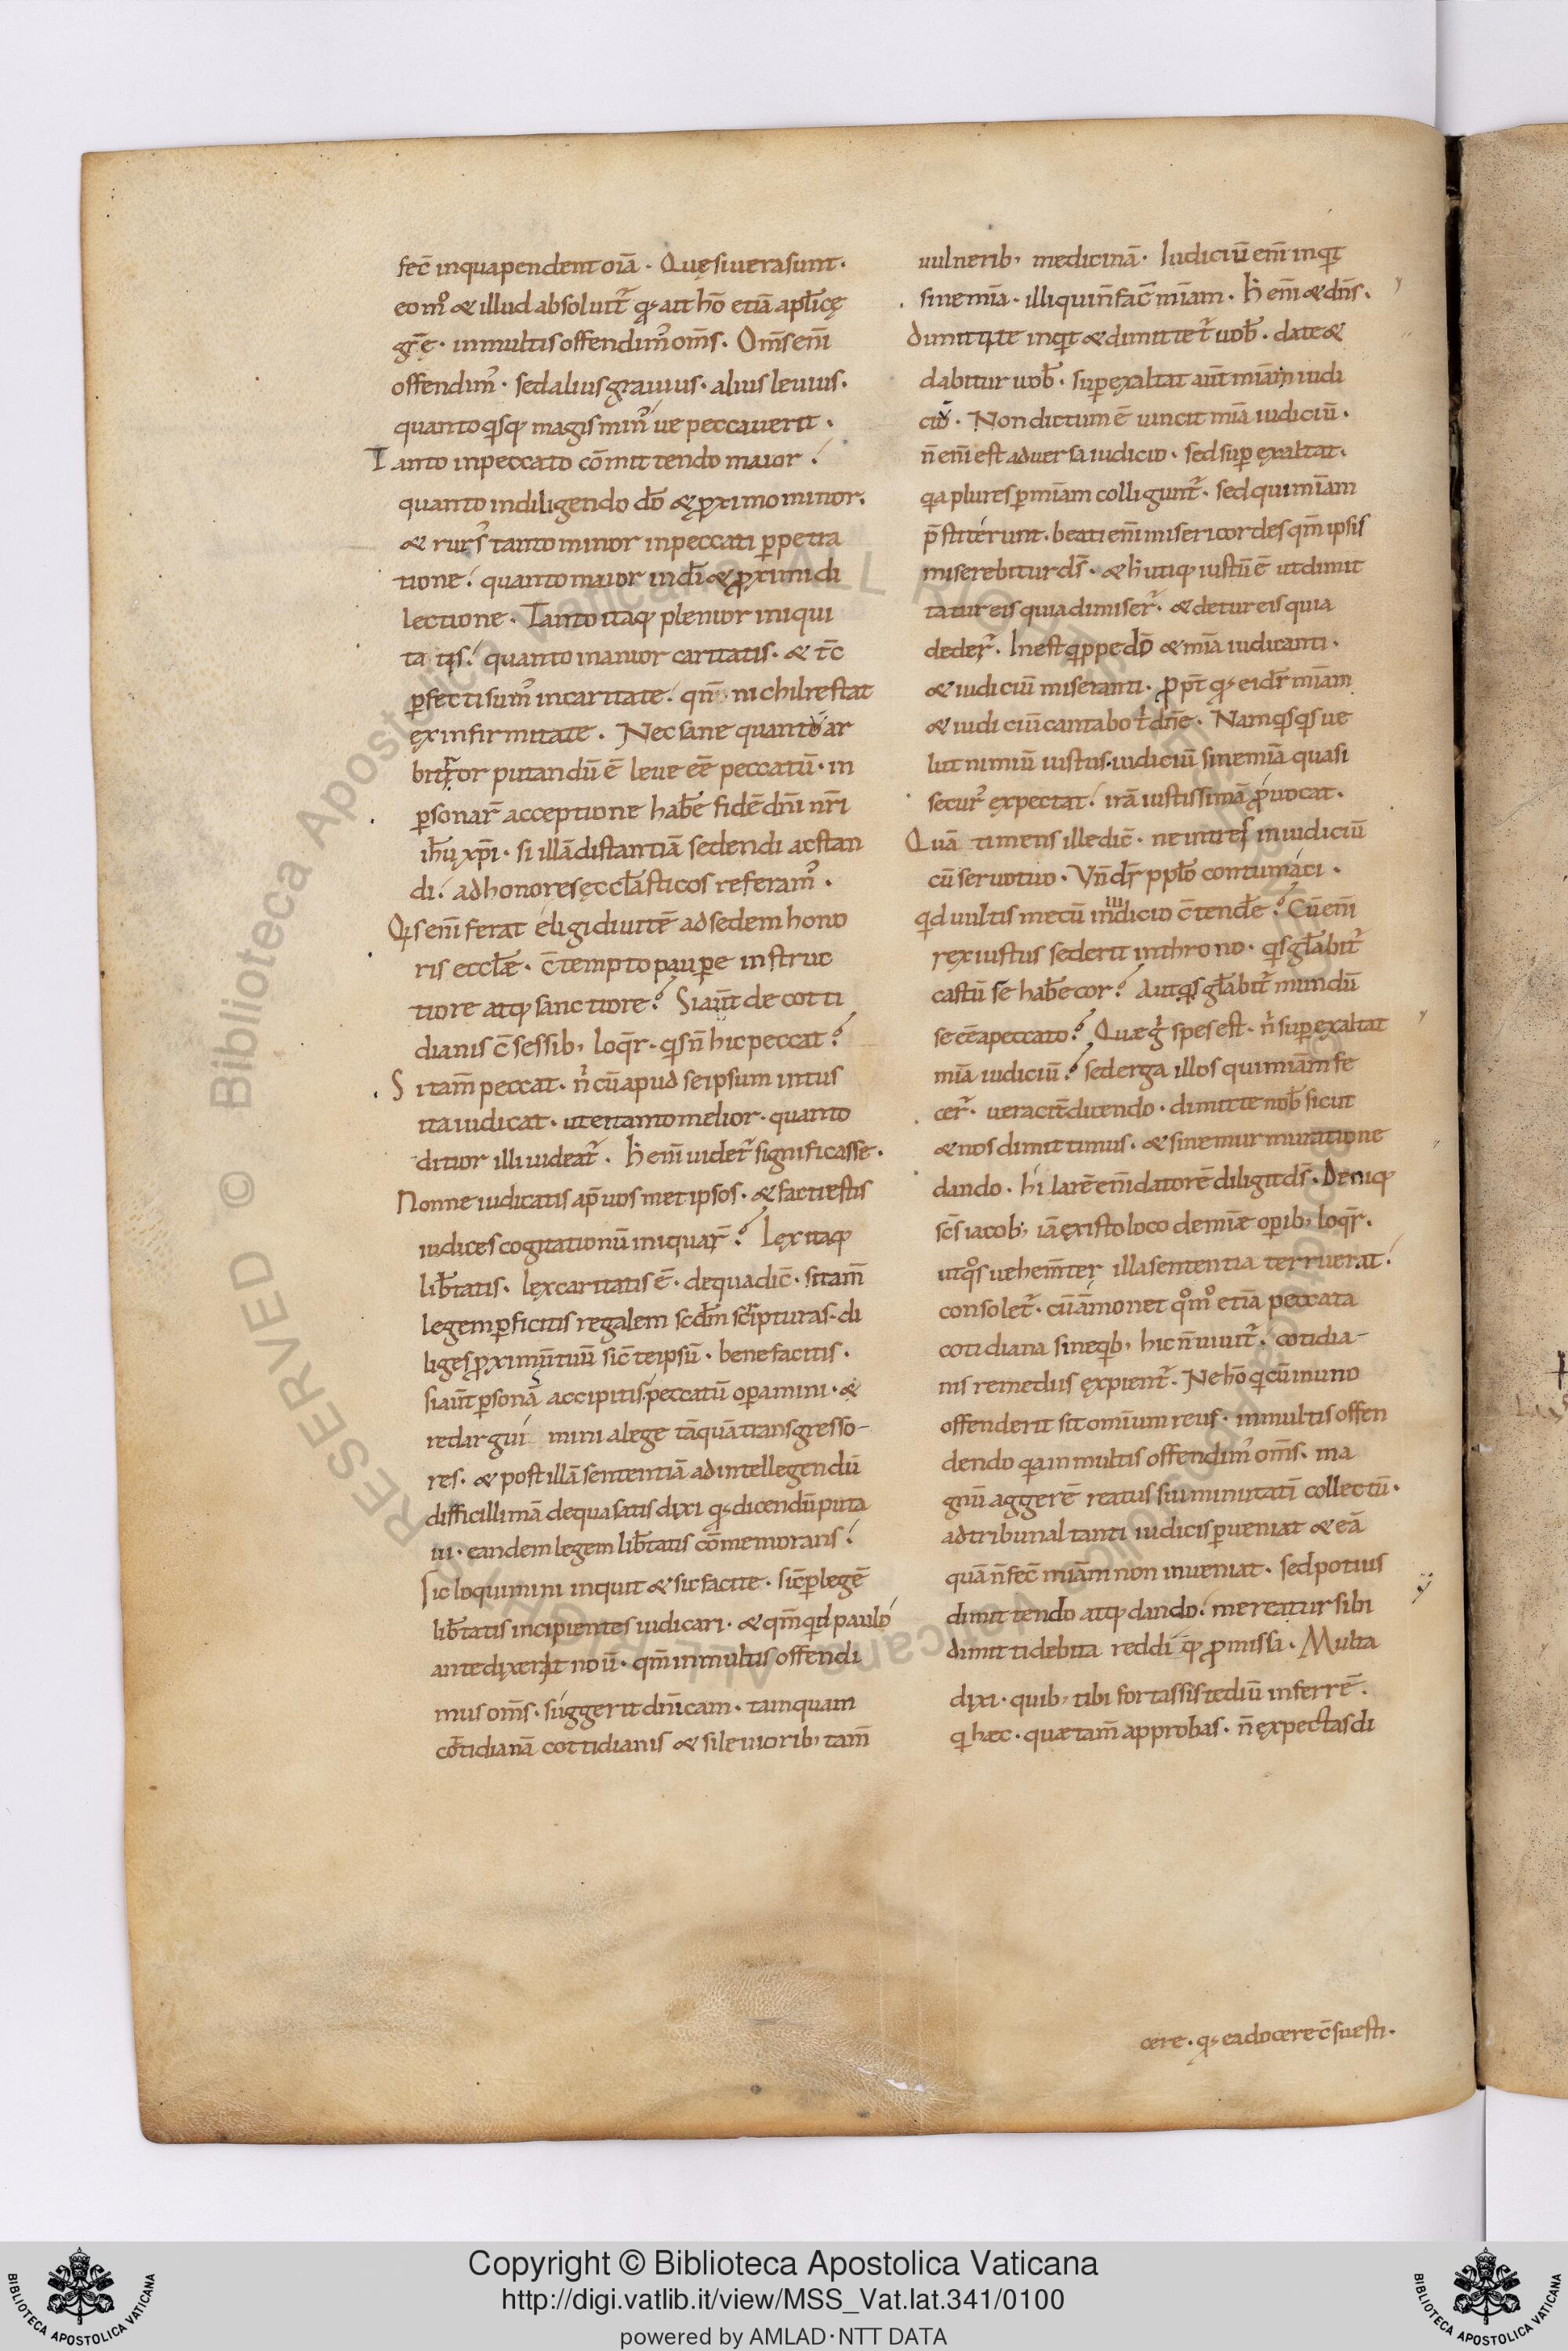 fec̄ inquapendent oīa · Quę siuerasunt ·
eom̊ & illud absoluit᷑ qđ ait hō etiā apl̄icę
gr̄ę · inmultisoffendim᷒ om̄s · Om̄s enī
offendim᷒ · sedalius grauius · alius leuius ·
quantoqisq; magis min᷒ ue peccauerit ·
Tanto inpeccato cōmittendo maior ·
quanto indiligendo dō & ꝓximo minor ·
& rurs᷒ tanto minor inpeccati ꝑpetra
tione · quanto maior indī & ꝓximi di
lectione · Tanto itaq; plenior iniqui
tatis · quanto inanior caritatis · & tc̄
ꝑfecti sum᷒ incaritate · qn̄ nichil restat
ex infirmitate · Nec sane quantū ar
bitror putandū ē leue eē peccatū · in
ꝑsonar̄ acceptione hab̄e fidē dn̄i nr̄i
ih̄u xp̄i · si illā distantiā sedendi acstan
di · ad honores ęccl̄asticos referam᷒ ·
Qis enī ferat eligi diuitē ad sedem hono
ris eccl̄æ · c̄tempto paupe instruc
tiore atq; sanctiore? Siaūt de cotti
dianis c̄sessib; loqr̄ · qis n̄ hic peccat?
Sitam̄ peccat · n̄ cū apud seipsum intus
ita iudicat · ut eitanto melior · quanto
ditior illi uideat᷑ · h̄ enī uidet᷑ significasse ·
Nonne iudicatis ap̄ uos met ipsos · & facti estis
iudices cogitationū iniquar̄? Lex itaq;
lib̄tatis · lex caritatis ē · dequa dic̄ · sitam̄
legem ꝑficitis regalem scd̄m scripturas · di
liges ꝓximū tuū sic̄ teipsū · bene facitis ·
siaūt ꝑsonā accipitis peccatū oꝑamini · &
redargui mini alege tāquā transgresso-
res · & post illā sententiā ad intellegendū
difficillimā dequa satis dixi qđ dicendū puta
ui · eandem legem lib̄tatis cōmemorans ·
Sic loquimini inquit & sic facite · sic̄ ꝑ legē
lib̄tatis incipientes iudicari · & qm̄ qd paulo
ante dixerat nouū · qm̄ inmultis offendi
mus om̄s · suggerit dn̄icam · tanquam
cotidianā cottidianis & sileuiorib; tam̄
uulnerib; medicinā · Iudiciū enī inqit
sine mīa · illi qui n̄ fac̄ mīam · h̄ enī & dn̄s ·
Dimittite inqit & dimittet᷑ uob̄ · date &
dabitur uob̄ · suꝑexaltat aūt mīam iudi
ciū · Non dictum ē uincit mīa iudiciū ·
n̄ enī est aduersa iudicio · sed suꝑ exaltat ·
qa plures ꝑ mīam colligunt᷑ · sed qui mīam
p̄stiterunt · beati enī misericordes qm̄ ipsis
miserebitur ds̄ · & h̄ utiq; iustū ē ut dimit
tatur eis quia dimiser᷑ · & detur eis quia
deder᷑ · Inest qippe dō & mīa iudicanti ·
& iudiciū miseranti · ꝓpt̄ qđ ei dr̄ mīam
& iudiciū cantabo t̄ dn̄e · Nam qisqis ue
lut nimiū iustus · iudiciū sine mīa quasi
secur᷒ expectat · irā iustissimā ꝓuocat ·
Quā timens ille dic̄ · ne intres in iudiciū
cū seruo tuo · Vn̄ dr̄ pplo contumaci ·
qid uultis mecū iudicio c̄tende? Cū enī
rex iustus sederit in throno · qis gl̄abit᷑
castū se hab̄e cor? Aut qis gl̄abit᷑ mundū
se eē apeccato? Quæ g̊ spes est · n̄ suꝑexaltat
mīa iudiciū? sed erga illos qui mīam fe
cer᷑ · ueracit̄ dicendo · dimitte nob̄ sicut
& nos dimittimus · & sine murmuratione
dando · hi larē enī datorē diligit ds̄ · Deniq;
sc̄s iacob; iā ex isto loco de mīæ oꝑib; loqr̄ ·
ut qo᷑s uehem̄ter illa sententia terruerat ·
consolet᷑ · cū āmonet qo᷑m᷒ etiā peccata
cotidiana sine qib; hic n̄ uiuit᷑ · cotidia-
nis remediis expient᷑ · Ne hō qi cū in uno
offenderit sit omīum reus · inmultis offen
dendo qa inmultis offendim᷒ om̄s · ma
gnū aggerē reatus sui minutatī collectū ·
ad tribunal tanti iudicis ꝑueniat & eā
quā n̄ fec̄ mīam non inueniat · sed potius
dimittendo atq; dando · mereatur sibi
dimitti debita reddi q; ꝓmissa · Multa
dixi · quib; tibi fortassis tediū inferrē ·
qi hæc · quæ tam̄ approbas · n̄ expectas di
cere · qđ ea docere c̄suesti ·
Copyright © Biblioteca Apostolica Vaticana
http://digi.vatlib.it/view/MSS_Vat.lat.341/0100
powered by AMLAD·NTT DATA
BIBLIOTECA APOSTOLICA VATICANA
BIBLIOTECA APOSTOLICA VATICANA